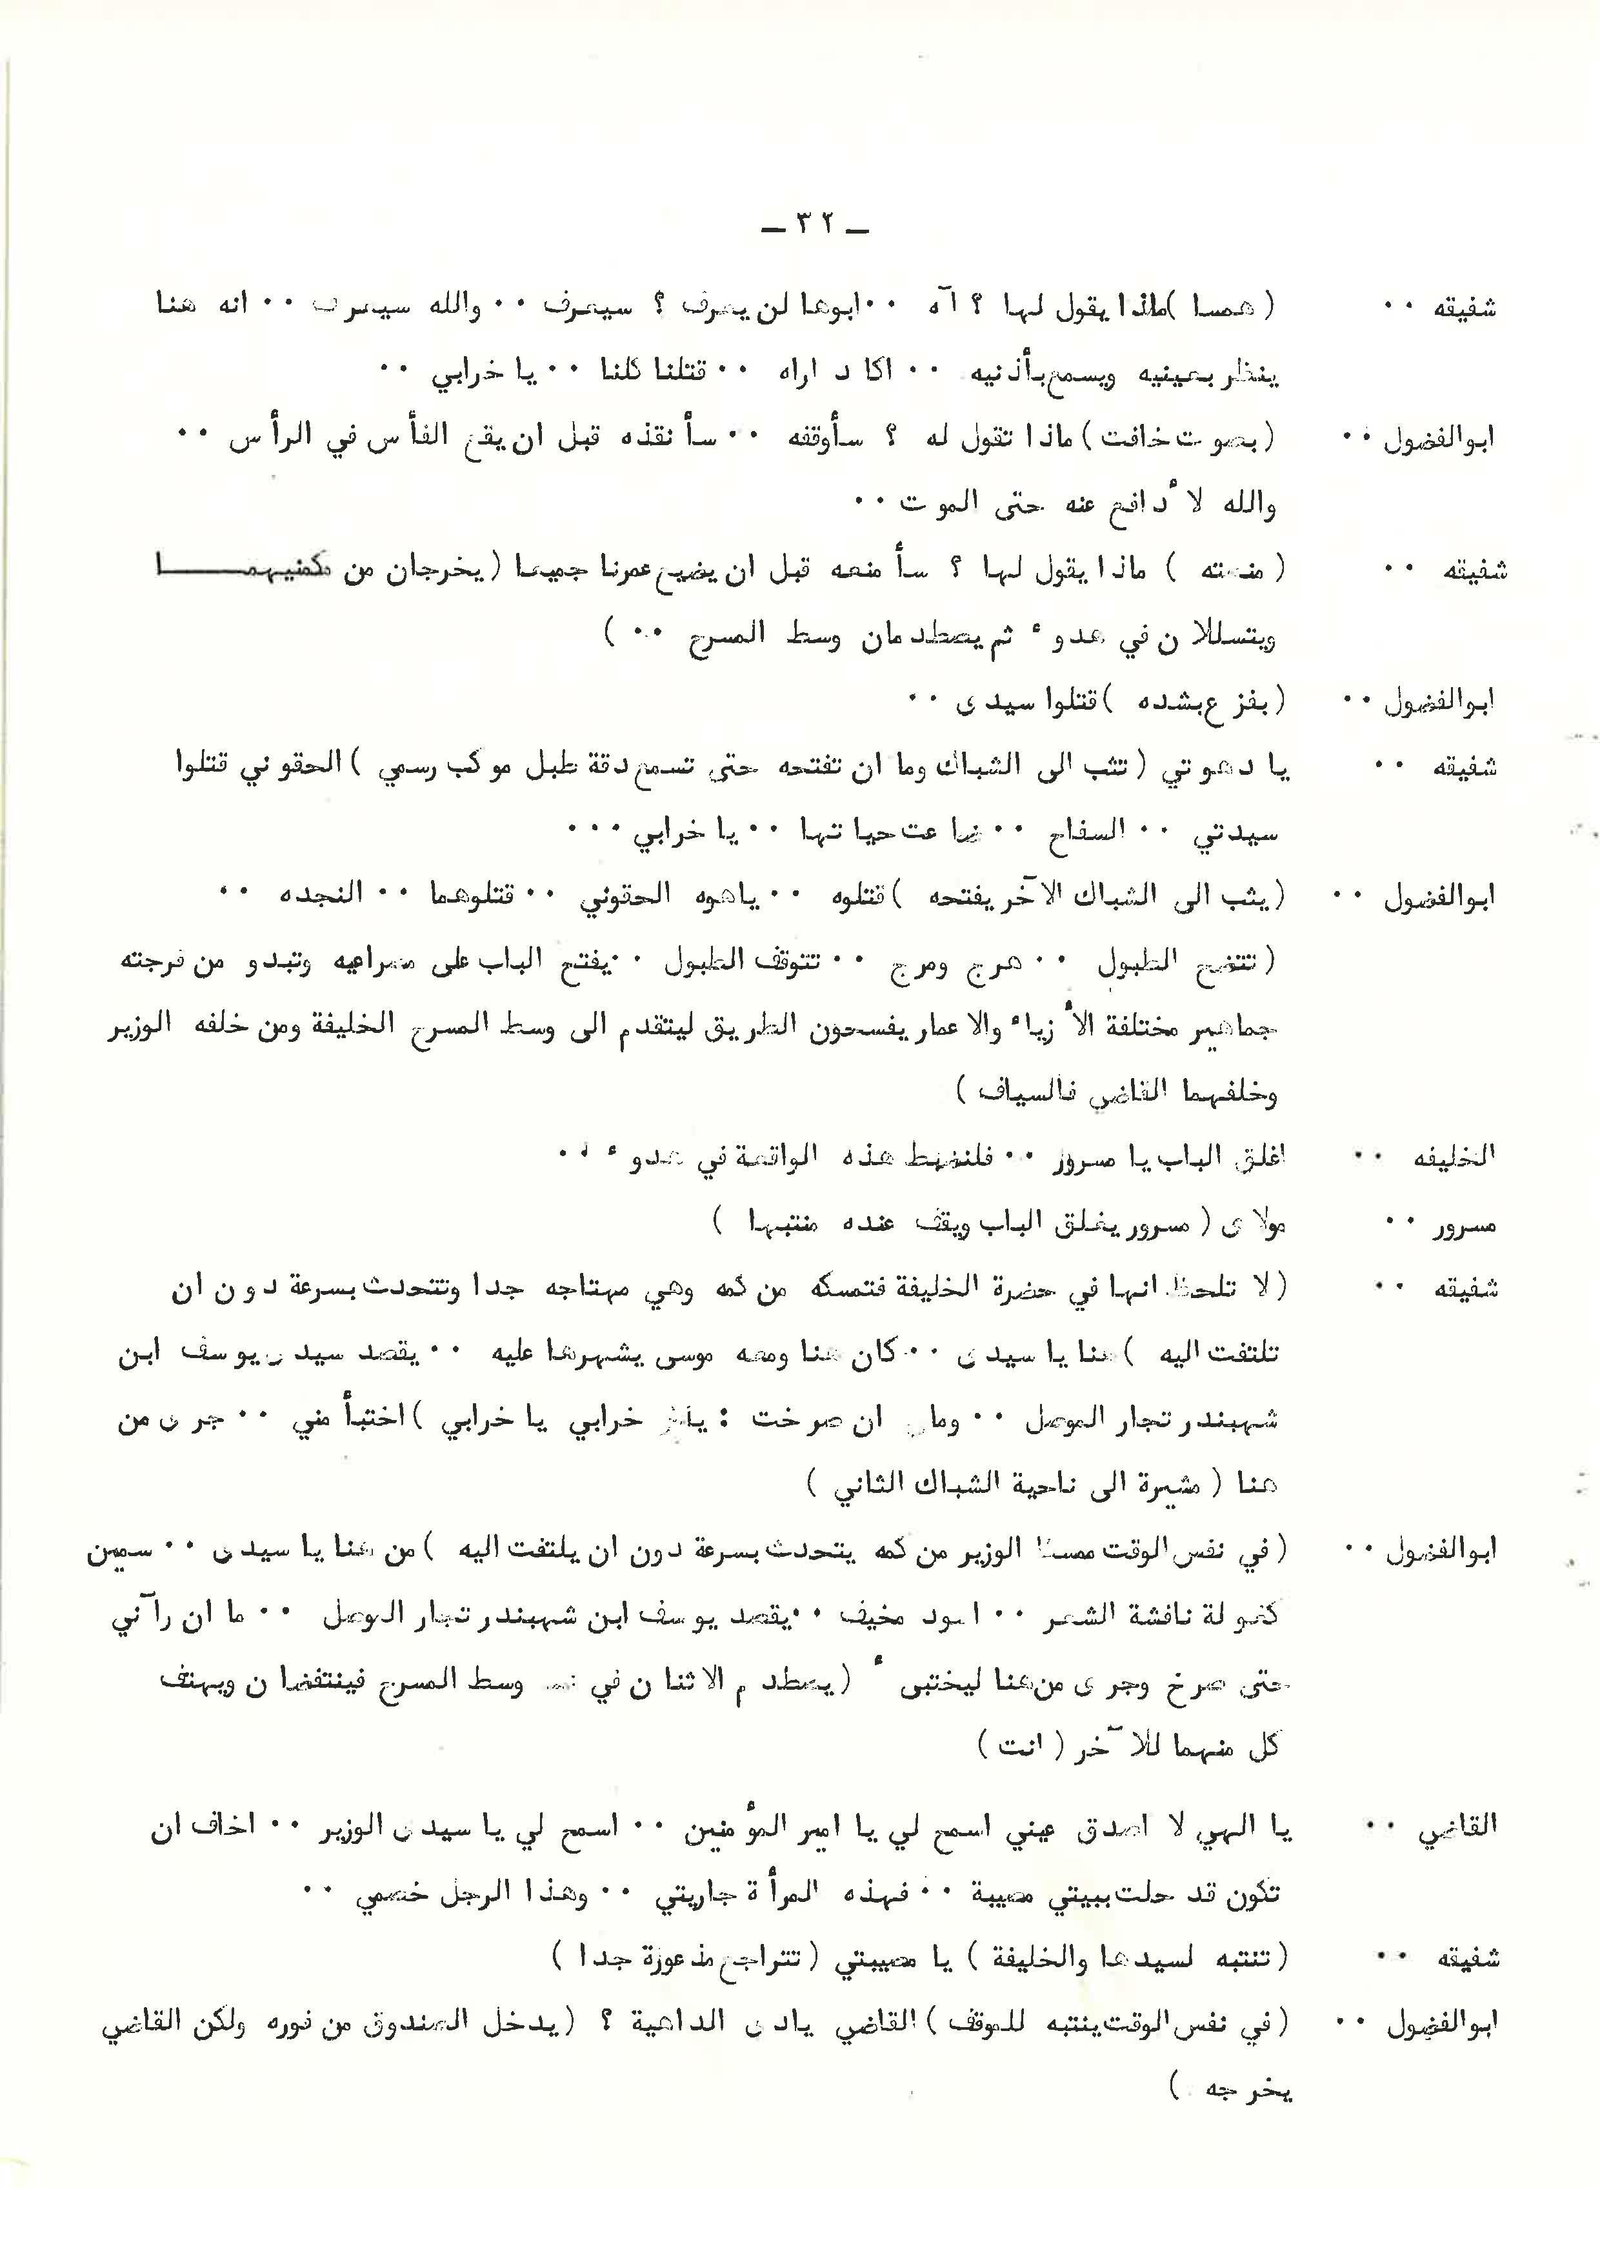 ـ ٣٢ ـ
شفيقه ٠٠ ( همسا ) ماذا يقول لها ؟ آه ٠٠ ابوها لن يعرف ؟ سيعرف ٠٠ والله سيعرف ٠٠ انه هنا
ينظر بعينيه ويسمع بأذنيه ٠٠ اكاد اراه ٠٠ قتلنا كلنا ٠٠ يا خرابي ٠٠
ابوالفضول ٠٠ ( بصوت خافت ) ماذا تقول له ؟ سأوقفه ٠٠ سأنقذه قبل ان يقع الفأس في الرأس ٠٠
والله لأدافع عنه حتى الموت ٠٠
شفيقه ٠٠ ( منصته ) ماذا يقول لها ؟ سأمنعه قبل ان يضيع عمرنا جميعا ( يخرجان من مكمنيهمـــــا
ويتسللان في هدوء ثم يصطدمان وسط المسرح ٠٠ )
ابوالفضول ٠٠ ( بفزع بشده ) قتلوا سيدى ٠٠
شفيقه ٠٠ يا دهوتي ( تثب الى الشباك وما ان تفتحه حتى تسمع دقة طبل موكب رسمي ) الحقوني قتلوا
سيدتي ٠٠ السفاح ٠٠ ضاعت حياتها ٠٠ يا خرابي ٠٠٠
ابوالفضول ٠٠ ( يثب الى الشباك الآخر يفتحه ) قتلوه ٠٠ ياهوه الحقوني ٠٠ قتلوهما ٠٠ النجده ٠٠
( تتضح الطبول ٠٠ هرج ومرج ٠٠ تتوقف الطبول ٠٠ يفتح الباب على مصراعيه وتبدو من فرجته
جماهير مختلفة الأزياء والاعمار يفسحون الطريق ليتقدم الى وسط المسرح الخليفة ومن خلفه الوزير
وخلفهما القاضي فالسياف )
الخليفه ٠٠ اغلق الباب يا مسرور ٠٠ فلنضبط هذه الواقعة في هدوء ٠٠
مسرور ٠٠ مولاى ( مسرور يغلق الباب ويقف عنده منتبها )
شفيقه ٠٠ ( لا تلحظ انها في حضرة الخليفة فتمسكه من كمه وهي مهتاجه جدا وتتحدث بسرعة دون ان
تلتفت اليه ) هنا يا سيدى ٠٠ كان هنا ومعه موسى يشهرها عليه ٠٠ يقصد سيدى يوسف ابن
شهبندر تجار الموصل ٠٠ وما ان صرخت : خرابي يا خرابي ) اختبأ مني ٠٠ جرى من
هنا ( مشيرة الى ناحية الشباك الثاني )
ابوالفضول ٠٠ ( في نفس الوقت ممسكا الوزير من كمه يتحدث بسرعة دون ان يلتفت اليه ) من هنا يا سيدى ٠٠ سمين
كغولة نافشة الشعر ٠٠ اسود مخيف ٠٠ يقصد يوسف ابن شهبندر تجار الموصل ٠٠ ما ان رآني
حتى صرخ وجرى من هنا ليختبىء ( يصطدم الاثنان في وسط المسرح فينتفضان ويهتف
كل منهما للآخر ( انت )
القاضي ٠٠ يا الهي لا اصدق عيني اسمح لي يا امير المؤمنين ٠٠ اسمح لي يا سيدى الوزير ٠٠ اخاف ان
تكون قد حلت ببيتي مصيبة ٠٠ فهذه المرأة جاريتي ٠٠ وهذا الرجل خصمي ٠٠
شفيقه ٠٠ ( تنتبه لسيدها والخليفة ) يا مصيبتي ( تتراجع مذعورة جدا )
ابوالفضول ٠٠ ( في نفس الوقت ينتبه للموقف ) القاضي يادى الداهية ؟ ( يدخل الصندوق من فوره ولكن القاضي
يخرجه )